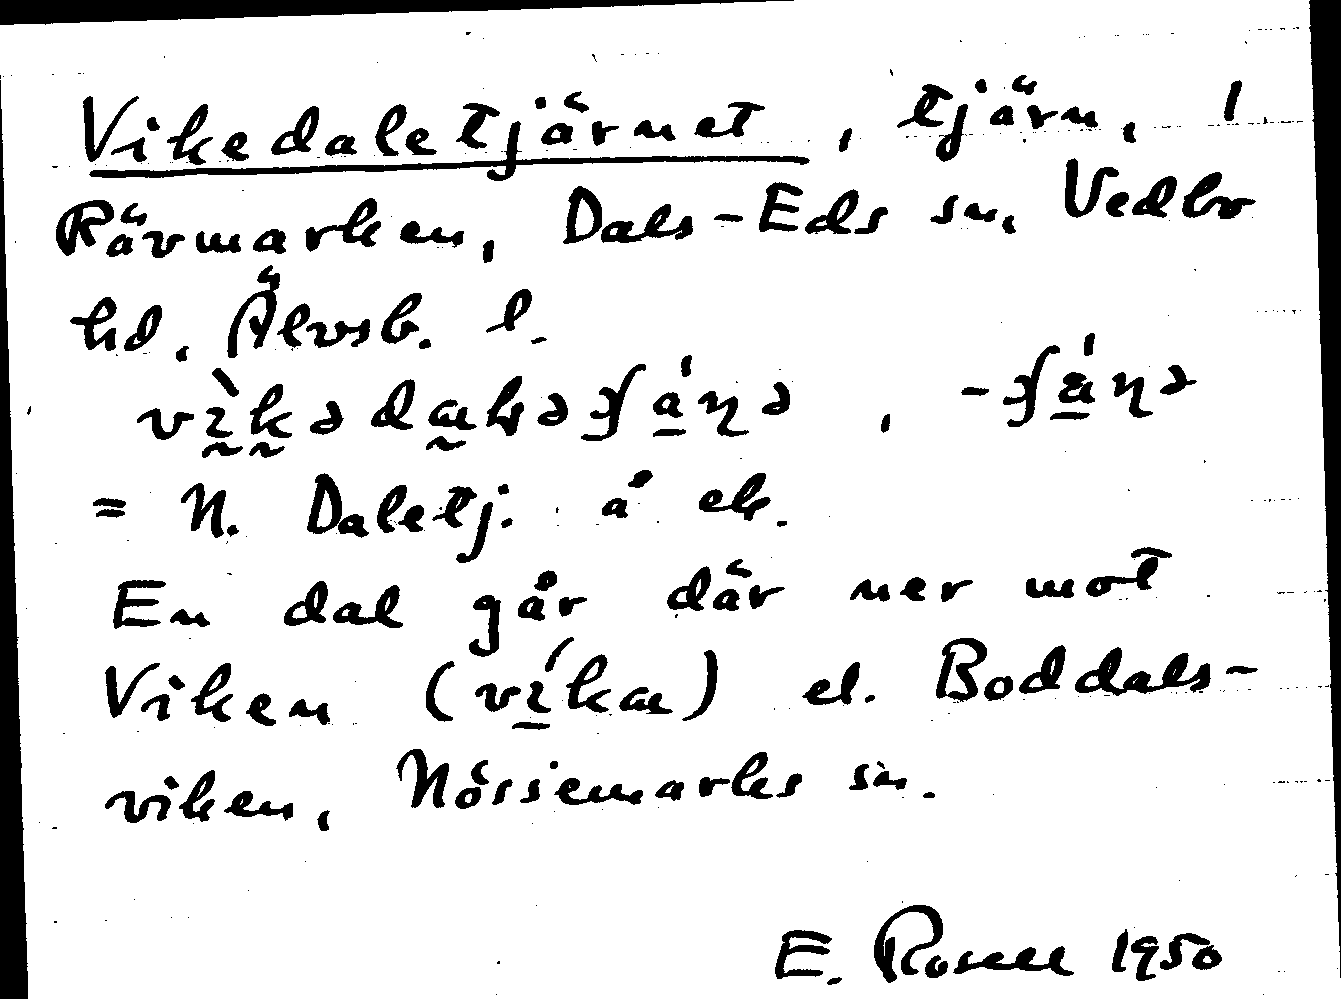 Vikedaletjärnet, tjärn, 1
Rävmarken, Dals-Eds sn, Vedbo
hd, Älvsb. l.
= N. Daletj. å ek.
En dal går där ner mot
Viken (víka) el. Boddals-
viken, Nössemarks sn.
E. Rosell 1950